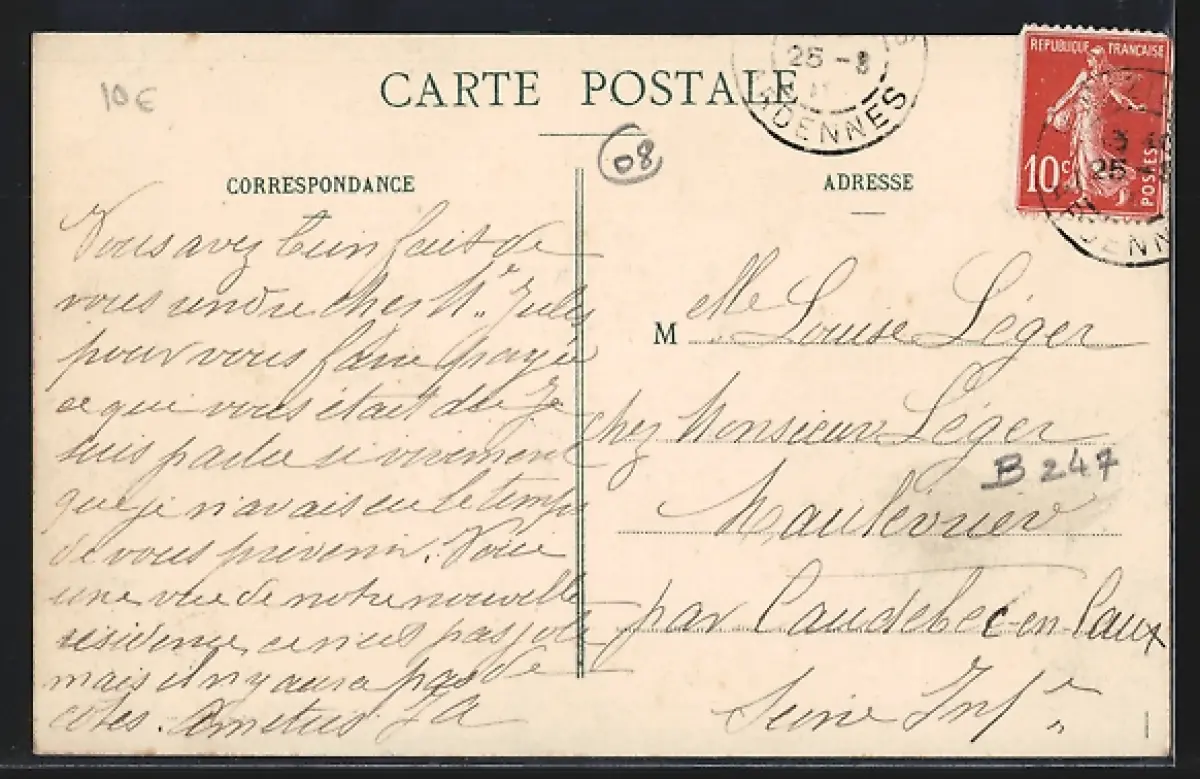 10€
CARTE POSTALE
25 -8
ARDENNES
REPUBLIQUE FRANÇAISE
10c
POSTES
25 -8
08
CORRESPONDANCE
Vous avez bien fait de
vous rendre chez Mr Jules
pour vous faire payée
ce que vous était du Je
suis partie si vivement
que je n'avais eu le temps
de vous prévenir. Voici
une vue de notre nouvelle
résidence, ce n'est pas joli
mais il n'y aura pas de
côtes. Amitiés. JA
ADRESSE
M elle Louise Léger
chez Monsieur Léger
B 247
Maulévrier
par Caudebec-en-Caux
Seine Infre